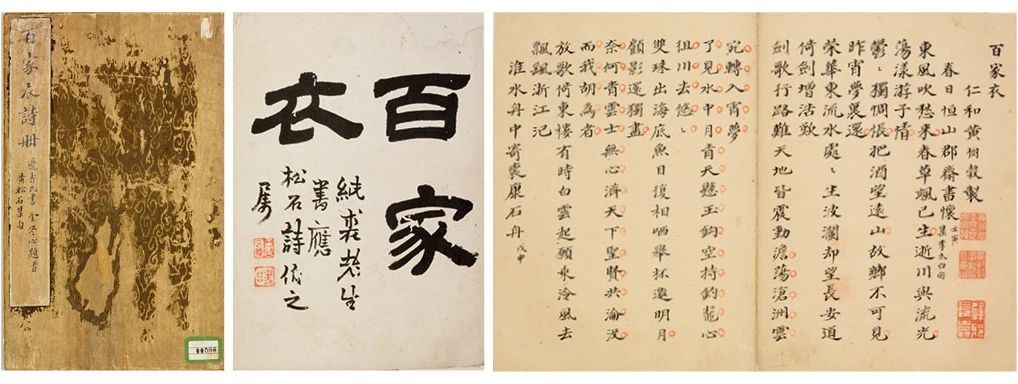 百家衣詩册
黃松石集句
金冬心題首
百家
衣
純裘老生
書應
松石詩伩之
屬
百家衣
仁和黃樹穀製
春日恒山郡齋書懷 壬寅 集李太白句
東風吹愁來春草颯已生逝川與流光
蕩漾游子情
鬱〻獨惆悵把酒望遠山故鄉不可見
昨宵夢裏還
榮華東流水處〻生波瀾却望長安道
倚劍增浩歎
劍歌行路難天地皆震動澹蕩滄洲雲
宛轉入宵夢
了見水中月青天懸玉鈎空持釣鼇心
徂川去悠〻
雙珠出海底魚目復相哂舉杯邀明月
顧影還獨盡
奈何青雲士無心濟天下聖賢共淪没
而我胡為者
放歌倚東樓有時白雲起願乘泠風去
飄颻浙江汜
淮水舟中寄裘康石舟 戊申